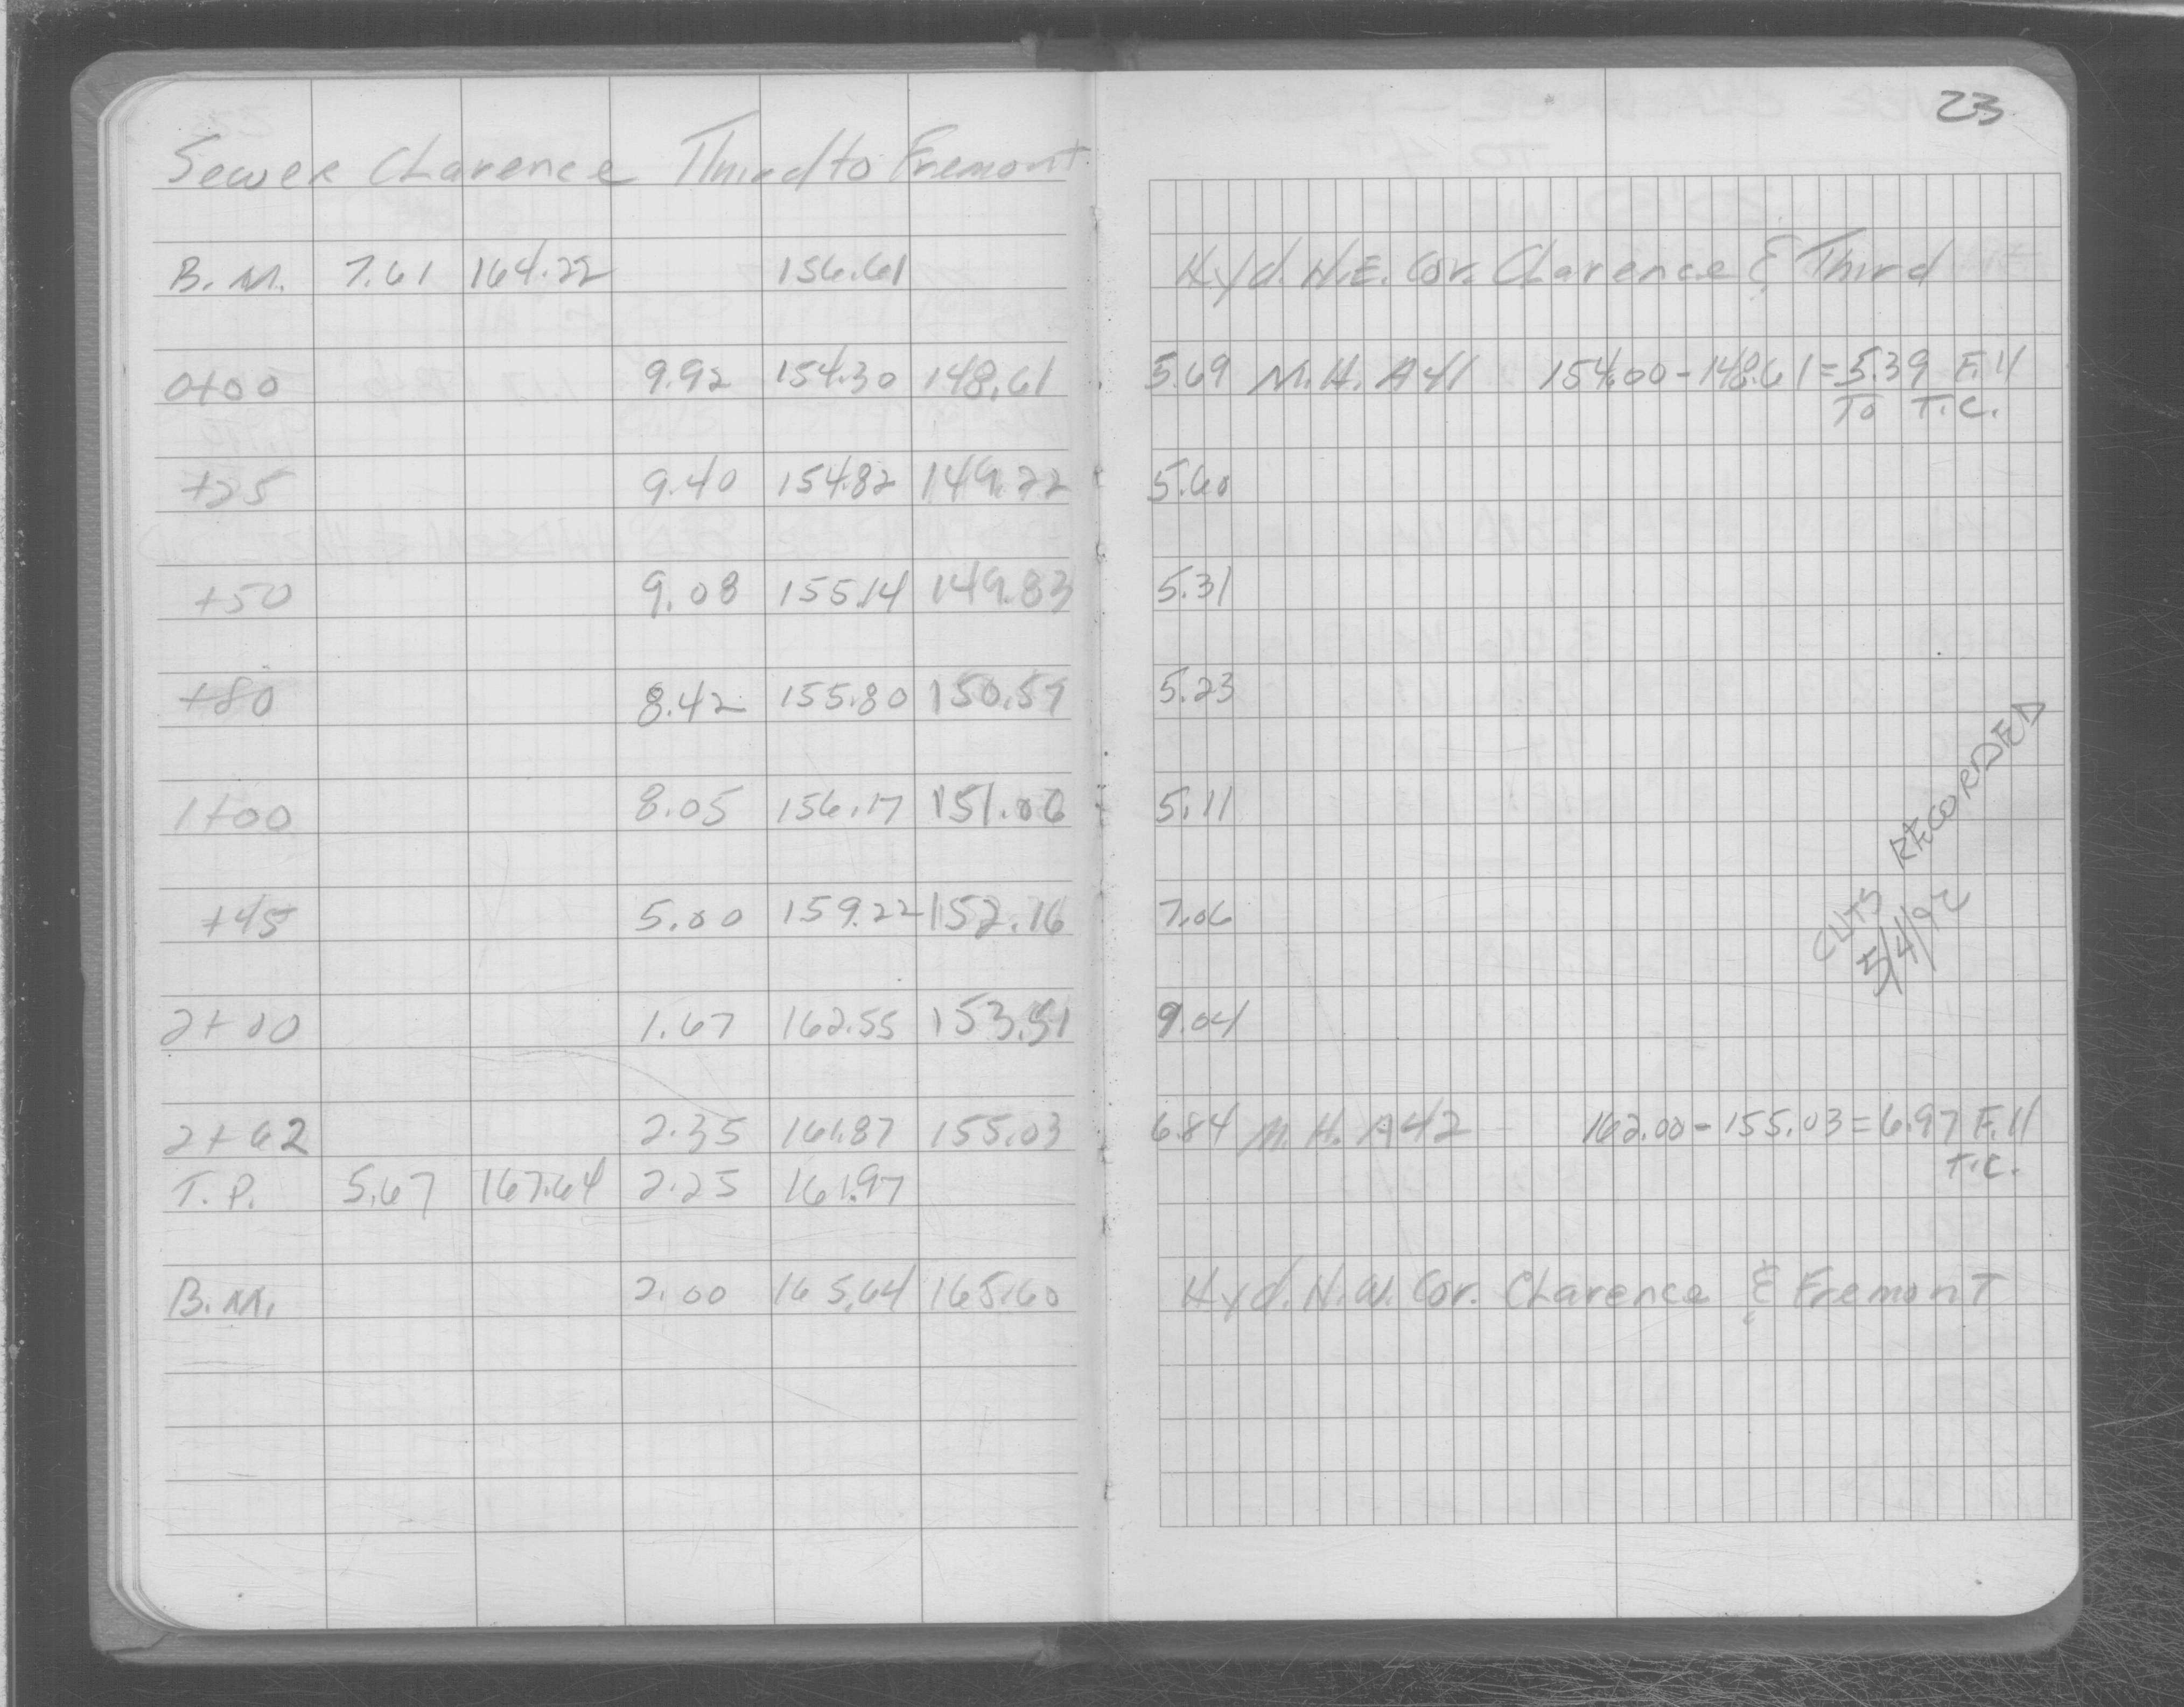 23
Sewer Clarence Third to Fremont
B.M. 7.61 164.22 156.61 Hyd. N.E. Cor. Clarence & Third
0+00 9.92 154.30 148.61 5.69 M.H. A41 154.00-148.61=5.39 Fill
To T.C.
+25 9.40 154.82 149.22 5.60
+50 9.08 155.14 149.83 5.31
+80 8.42 155.80 150.57 5.23
1+00 8.05 156.17 151.06 5.11
+45 5.00 159.22 152.16 7.06
2+00 1.67 162.55 153.51 9.04
2+62 2.35 161.87 155.03 6.84 M.H. A42 162.00-155.03=6.97 Fill
T.C.
T.P. 5.67 167.64 2.25 161.97
B.M. 2.00 165.64 165.60 Hyd. N.W. Cor. Clarence & Fremont
CUTS RECORDED
5/4/92